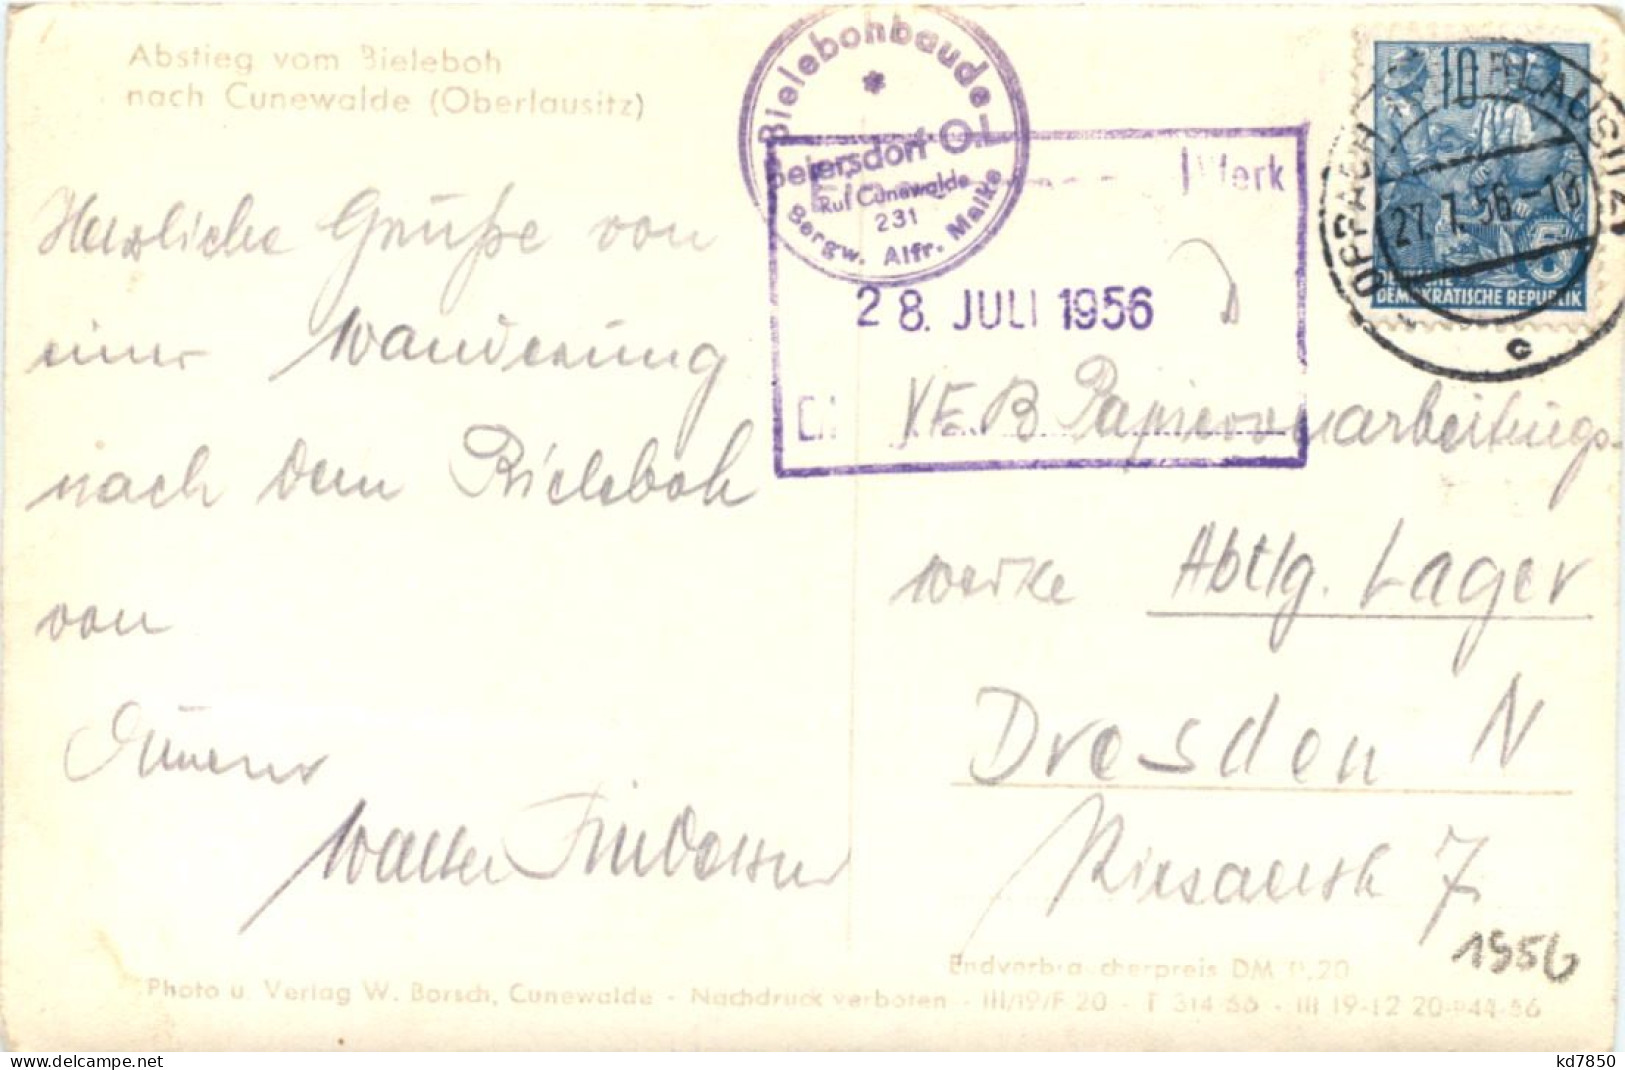 Abstieg vom Bieleboh
nach Cunewalde (Oberlausitz)
Bielebohbaude
Beiersdorf O.L.
Ruf Cunewalde
231
Bergw. Alfr.
Werk
28. JULI 1956
10
OPPACH
27.7.56
5
DEMOKRATISCHE REPUBLIK
c
Herzliche Grüße von
einer Wanderung
nach dem Bieleboh
von
Walter
VEB Papierverarbeitungs-
werke Abtlg. Lager
Dresden N
7
1956
Endverbraucherpreis DM 0.20
Photo u. Verlag W. Borsch, Cunewalde - Nachdruck verboten - III/19/F 20 - T 314 56 - III 19-12 20
www.delcampe.net
kd7850